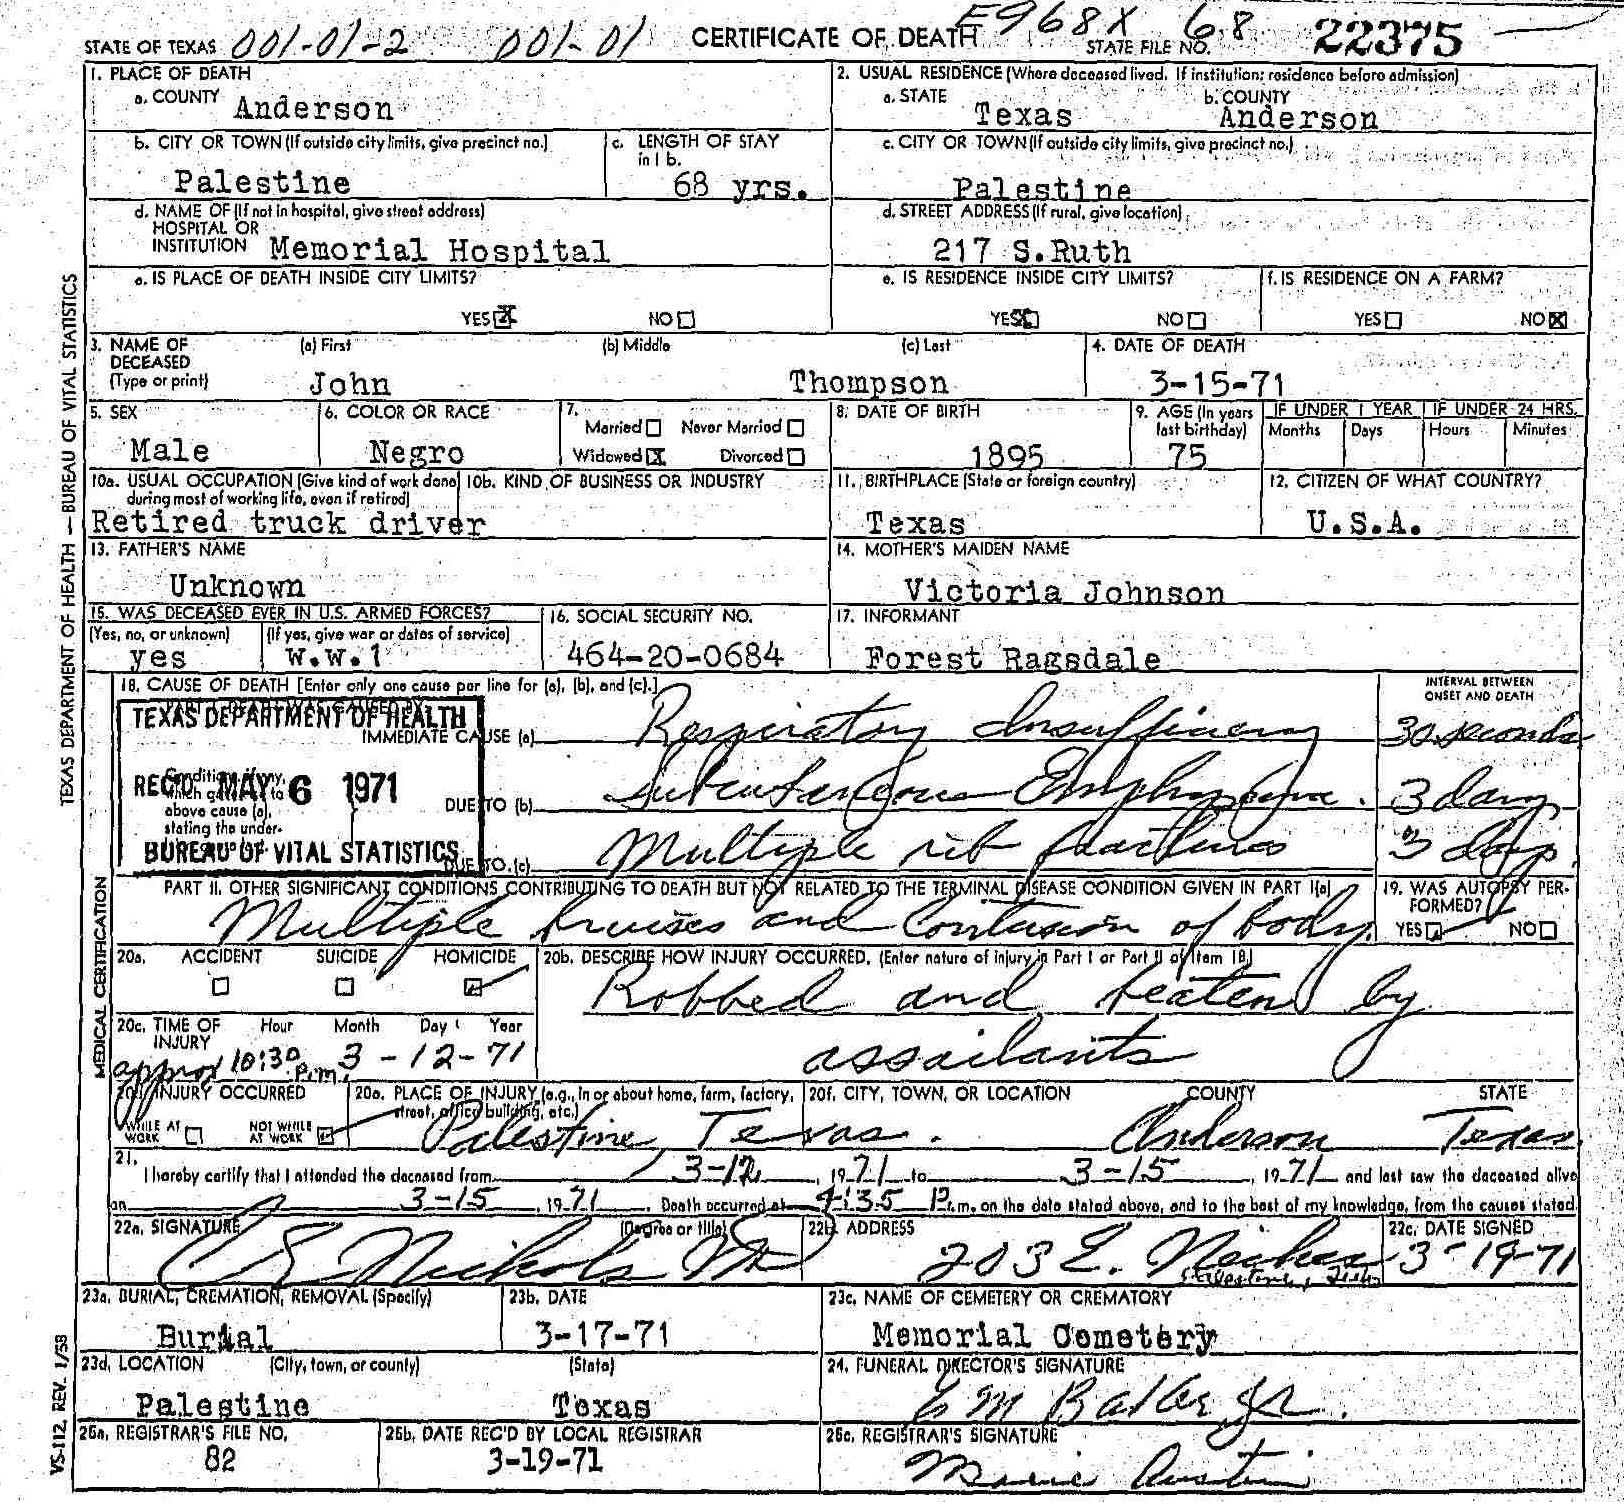 STATE OF TEXAS 001-01-2 001-01 CERTIFICATE OF DEATH E968X 68 STATE FILE NO. 22375
1. PLACE OF DEATH
a. COUNTY Anderson
2. USUAL RESIDENCE (Where deceased lived. If institution: residence before admission)
a. STATE Texas b. COUNTY Anderson
b. CITY OR TOWN (If outside city limits, give precinct no.) Palestine
c. LENGTH OF STAY in 1 b. 68 yrs.
c. CITY OR TOWN (If outside city limits, give precinct no.) Palestine
d. NAME OF (If not in hospital, give street address)
HOSPITAL OR
INSTITUTION Memorial Hospital
d. STREET ADDRESS (If rural, give location)
217 S.Ruth
e. IS PLACE OF DEATH INSIDE CITY LIMITS?
YES X NO
e. IS RESIDENCE INSIDE CITY LIMITS?
YES X NO
f. IS RESIDENCE ON A FARM?
YES NO X
3. NAME OF DECEASED (Type or print) (a) First (b) Middle (c) Last
John Thompson
4. DATE OF DEATH
3-15-71
5. SEX
Male
6. COLOR OR RACE
Negro
7. Married Never Married
Widowed X Divorced
8. DATE OF BIRTH
1895
9. AGE (In years last birthday)
75
IF UNDER 1 YEAR IF UNDER 24 HRS.
Months Days Hours Minutes
10a. USUAL OCCUPATION (Give kind of work done during most of working life, even if retired)
10b. KIND OF BUSINESS OR INDUSTRY
Retired truck driver
11. BIRTHPLACE (State or foreign country)
Texas
12. CITIZEN OF WHAT COUNTRY?
U.S.A.
13. FATHER'S NAME
Unknown
14. MOTHER'S MAIDEN NAME
Victoria Johnson
15. WAS DECEASED EVER IN U.S. ARMED FORCES?
(Yes, no, or unknown) (If yes, give war or dates of service)
yes W.W.1
16. SOCIAL SECURITY NO.
464-20-0684
17. INFORMANT
Forest Ragsdale
18. CAUSE OF DEATH [Enter only one cause per line for (a), (b), and (c).]
INTERVAL BETWEEN ONSET AND DEATH
TEXAS DEPARTMENT OF HEALTH
REC'D MAY 6 1971
BUREAU OF VITAL STATISTICS
IMMEDIATE CAUSE (a) Respiratory Insufficiency 30 seconds
above cause (a),
stating the under-
DUE TO (b) Subcutaneous Emphysema. 3 days
DUE TO (c) Multiple rib fractures 3 days
PART II. OTHER SIGNIFICANT CONDITIONS CONTRIBUTING TO DEATH BUT NOT RELATED TO THE TERMINAL DISEASE CONDITION GIVEN IN PART I(a)
Multiple bruises and Contusion of body.
19. WAS AUTOPSY PERFORMED?
YES NO
20a. ACCIDENT SUICIDE HOMICIDE
20b. DESCRIBE HOW INJURY OCCURRED. (Enter nature of injury in Part I or Part II of Item 18)
Robbed and beaten by
assailants
20c. TIME OF INJURY Hour Month Day Year
approx 10:30 p.m. 3-12-71
20d. INJURY OCCURRED
WHILE AT WORK NOT WHILE AT WORK
20e. PLACE OF INJURY (e.g., in or about home, farm, factory, street, office building, etc.)
20f. CITY, TOWN, OR LOCATION COUNTY STATE
Palestine, Texas. Anderson Texas
21. I hereby certify that I attended the deceased from 3-12, 1971 to 3-15, 1971 and last saw the deceased alive
on 3-15, 1971. Death occurred at 4:35 P.m. on the date stated above, and to the best of my knowledge, from the causes stated.
22a. SIGNATURE (Degree or title)
Nichols MD
22b. ADDRESS
203 E. Neches
Palestine, Texas
22c. DATE SIGNED
3-19-71
23a. BURIAL, CREMATION, REMOVAL (Specify)
Burial
23b. DATE
3-17-71
23c. NAME OF CEMETERY OR CREMATORY
Memorial Cemetery
23d. LOCATION (City, town, or county) (State)
Palestine Texas
24. FUNERAL DIRECTOR'S SIGNATURE
25a. REGISTRAR'S FILE NO.
82
25b. DATE REC'D BY LOCAL REGISTRAR
3-19-71
25c. REGISTRAR'S SIGNATURE
Marie Austin
TEXAS DEPARTMENT OF HEALTH — BUREAU OF VITAL STATISTICS
MEDICAL CERTIFICATION
VS-112, REV. 1/58